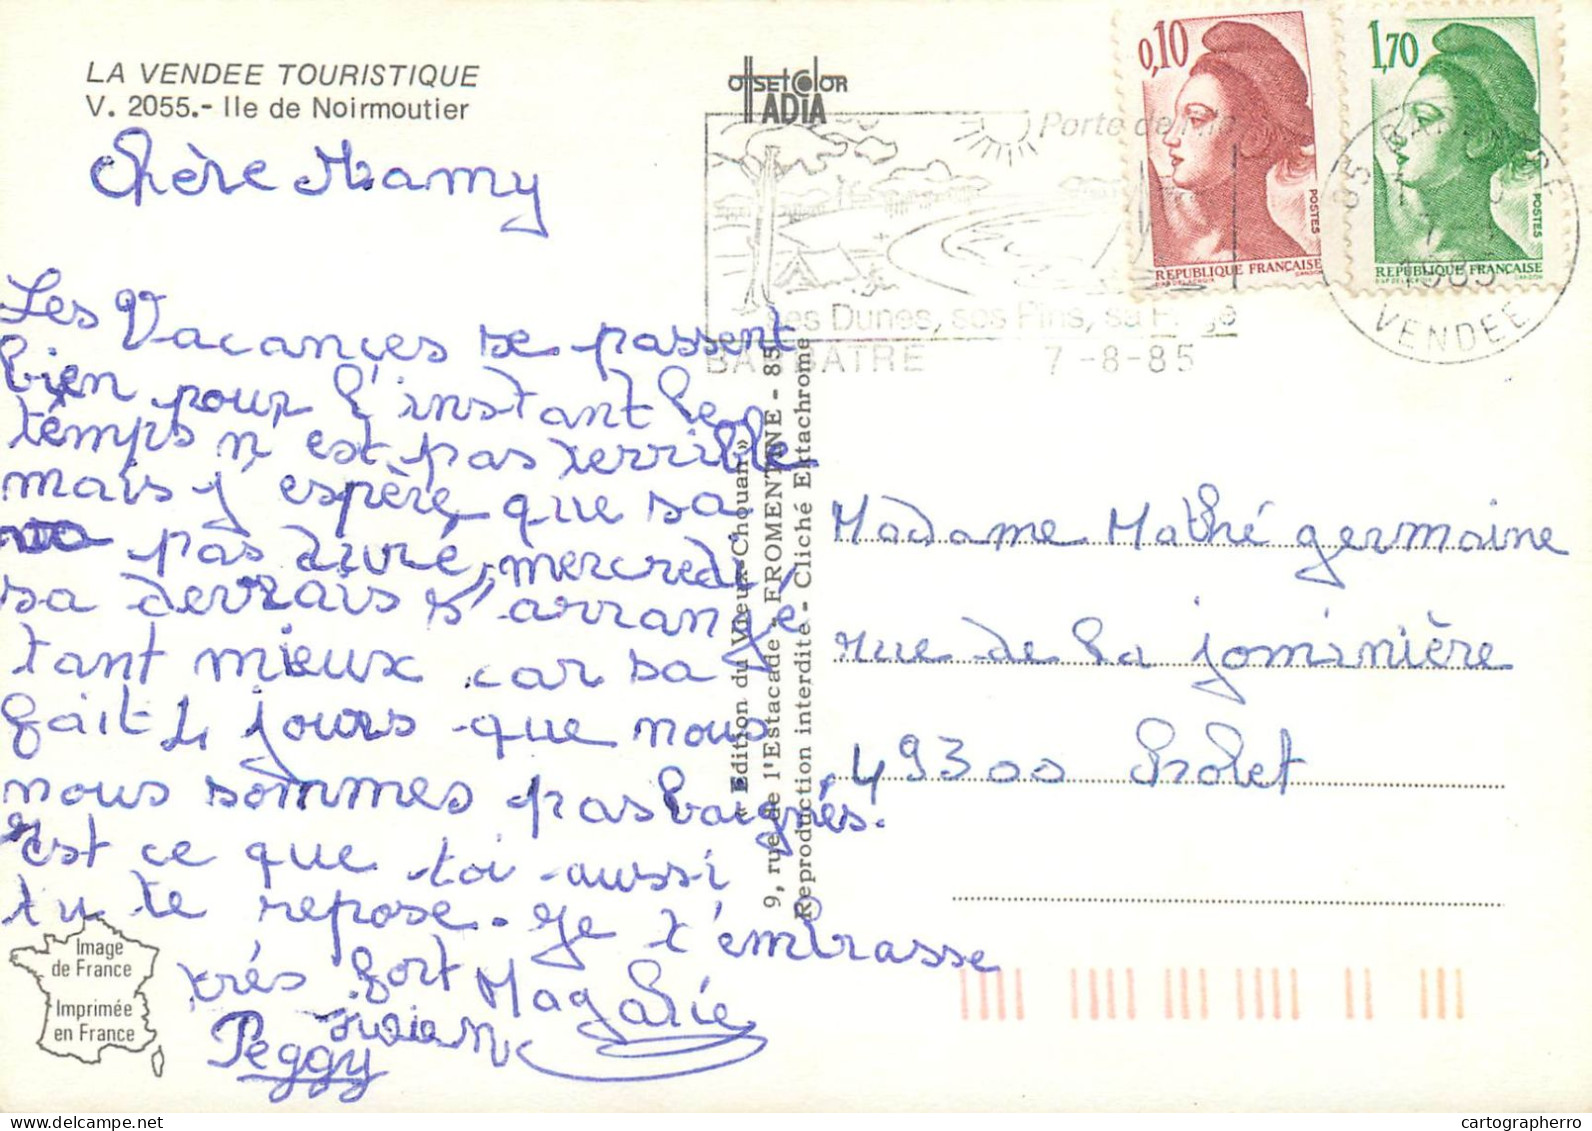 LA VENDEE TOURISTIQUE
V. 2055.- Ile de Noirmoutier
Chère Mamy
Les Vacançes se passent
bien pour l'instant le
temps n'est pas terrible
mais j'espère que sa
va pas duré, mercredi
sa devrais s'arrangé
tant mieux car sa
fait 4 jours que nous
nous sommes pas baignés.
est ce que toi aussi
tu te repose. Je t'embrasse
très fort Magalie
Peggy
Image
de France
Imprimée
en France
OffSET COLOR
IADIA
« Edition du Vieux Chouan »
9, rue de l'Estacade - FROMENTINE - 85
Reproduction interdite - Cliché Ektachrome
Porte de l'Ile
ses Dunes, ses Pins, sa Plage
BARBATRE 7-8-85
0,10
POSTES
REPUBLIQUE FRANÇAISE
1,70
POSTES
REPUBLIQUE FRANÇAISE
85 BARBATRE
7-8
1985
VENDEE
Madame Mathé germaine
rue de la jominière
49300 Cholet
cartographerro